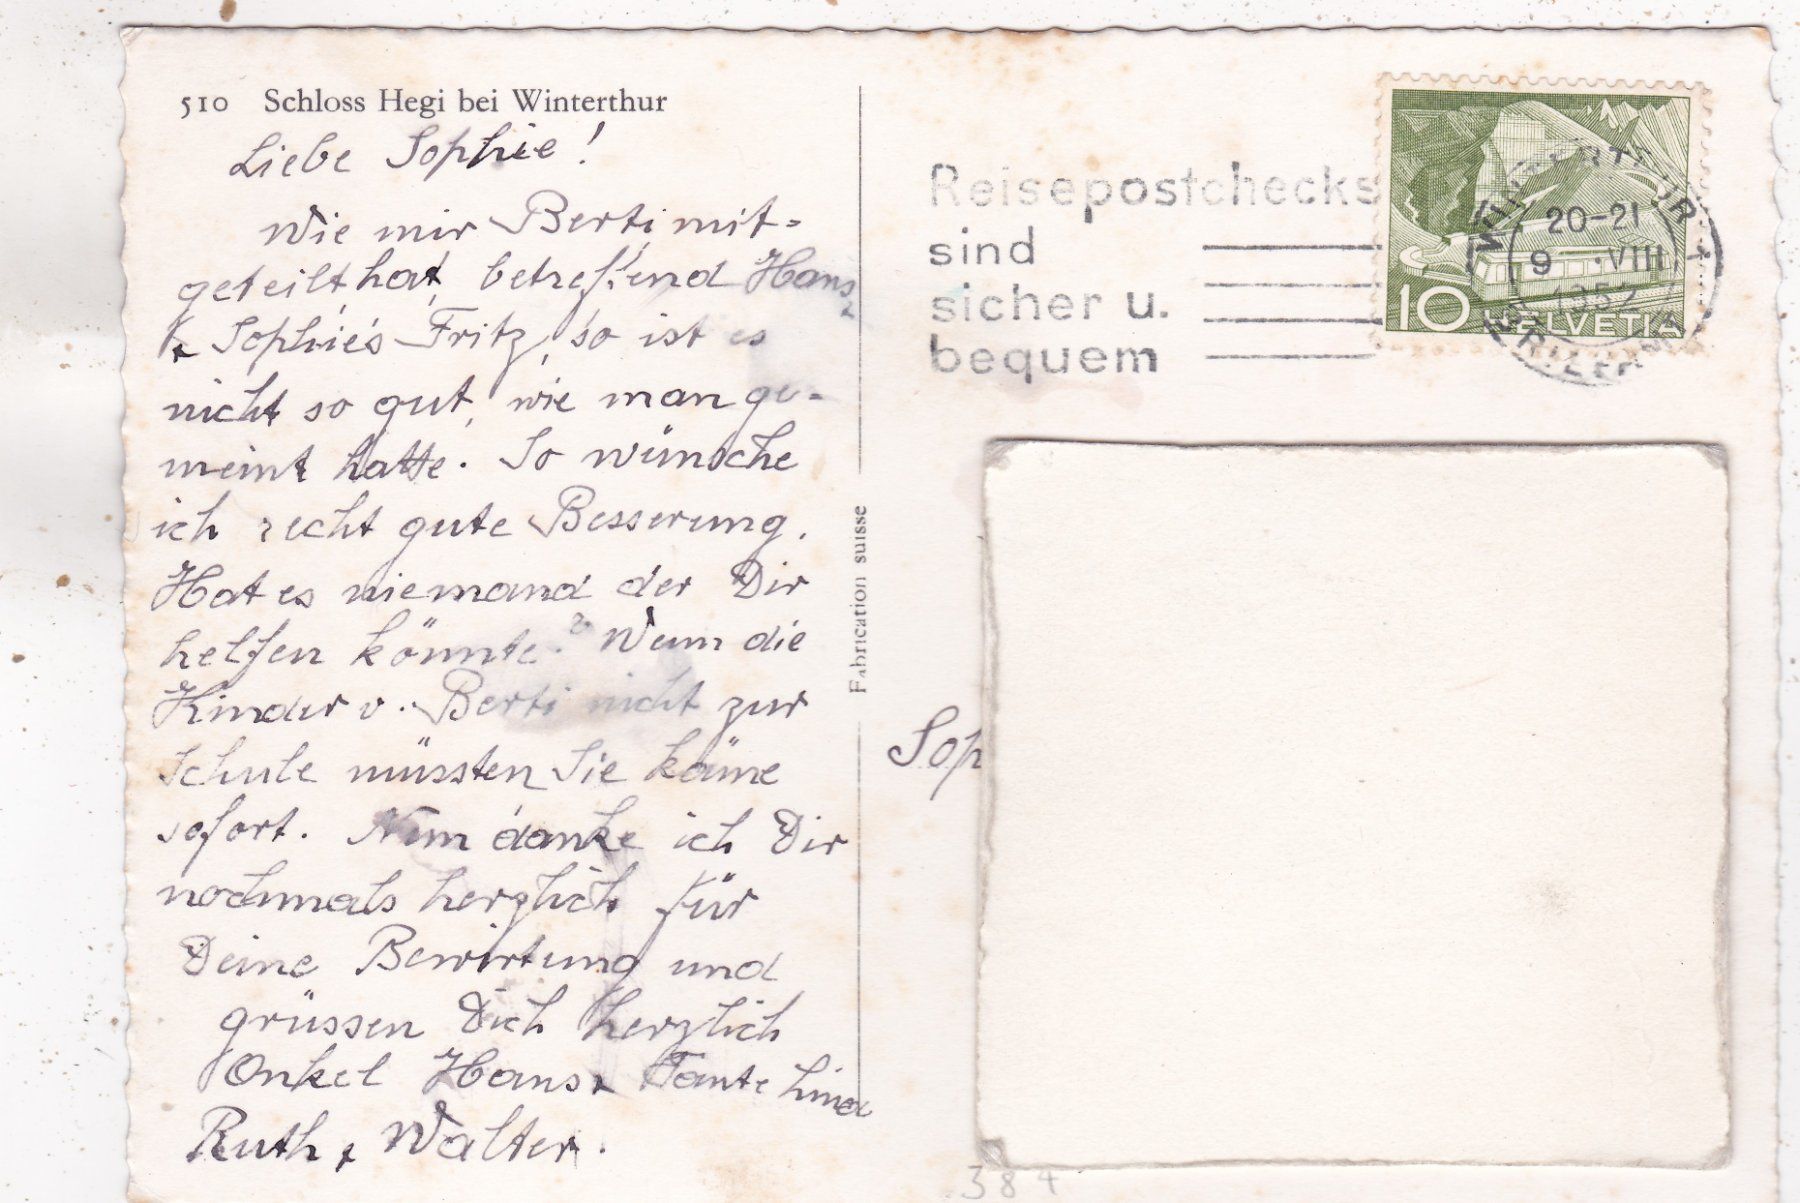 510 Schloss Hegi bei Winterthur
Liebe Sophie!
Wie mir Berti mit=
geteilt hat, betreffend Hans
& Sophie's Fritz, so ist es
nicht so gut, wie man ge=
meint hatte. So wünsche
ich recht gute Besserung.
Hat es niemand der Dir
helfen könnte? Wenn die
Kinder v. Berti nicht zur
Schule müssten Sie käme
sofort. Nun danke ich Dir
nochmals herzlich für
Deine Bewirtung und
grüssen Dich herzlich
Onkel Hans & Tante Lina
Ruth & Walter.
Fabrication suisse
Reisepostchecks
sind
sicher u.
bequem
WINTERTHUR 1
20-21
9 . VIII
BRIEFAUFGABE
10 HELVETIA
Sop
384